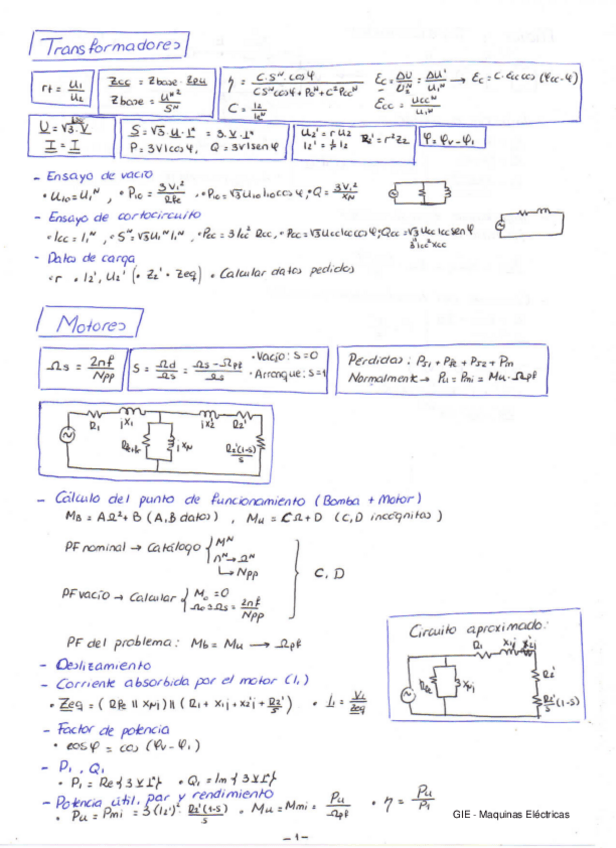 Transformadores
rt = U1/U2
Zcc = Zbase · Zpu
Zbase = U^N²/S^N
η = C·S^N·cosφ / (C·S^N cosφ + Po^N + C²Pcc^N)
C = I2/I2^N
Ec = ΔU/U2^N = ΔU'/U1^N → Ec = C·Ecc cos(φcc-φ)
Ecc = Ucc^N/U1^N
U = √3·V
I = I
S = √3·U·I* = 3·V·I*
P = 3VIcosφ, Q = 3VIsenφ
U2' = r U2
I2' = 1/r I2
Z2' = r²Z2
φ = φv - φI
- Ensayo de vacío
· U10 = U1^N, · P10 = 3V1²/RFe, · P10 = √3U10 I10 cosφ, · Q = 3V1²/XM
- Ensayo de cortocircuito
· Icc = I1^N, · S^N = √3U1^N I1^N, · Pcc = 3Icc² Rcc, · Pcc = √3Ucc Icc cosφ; Qcc = √3Ucc Icc senφ
3Icc²Xcc
- Datos de carga
· r · I2', U2' (· Z2' · Zeq) · Calcular datos pedidos
Motores
Ωs = 2πf/Npp
S = Ωd/Ωs = (Ωs - Ωpf)/Ωs
· Vacío: S=0
· Arranque: S=1
Perdidas: PJ1 + PFe + PJ2 + Pm
Normalmente → Pu = Pmi = Mu · Ωpf
R1 jX1 jX2' R2'
jXM
R2'(1-S)/S
- Cálculo del punto de funcionamiento (Bomba + Motor)
MB = AΩ² + B (A,B datos), Mu = CΩ + D (C,D incógnitas)
PF nominal → Catálogo { M^N
n^N → Ω^N
↳ Npp
C, D
PF vacío → Calcular { Mo = 0
Ωo = Ωs = 2πf/Npp
PF del problema: Mb = Mu → Ωpf
Circuito aproximado:
R1 X1j X2'j
RFe XMj
R2'
R2'(1-S)/S
- Deslizamiento
- Corriente absorbida por el motor (I1)
· Zeq = (RFe || XMj) || (R1 + X1j + X2'j + R2'/S) · I1 = V1/Zeq
- Factor de potencia
· cosφ = cos (φv - φI)
- P1, Q1
· P1 = Re{3VI*} · Q1 = Im{3VI*}
- Potencia útil, par y rendimiento
· Pu = Pmi = 3(I2')² R2'(1-S)/S · Mu = Mmi = Pu/Ωpf · η = Pu/P1
GIE - Maquinas Eléctricas
-1-